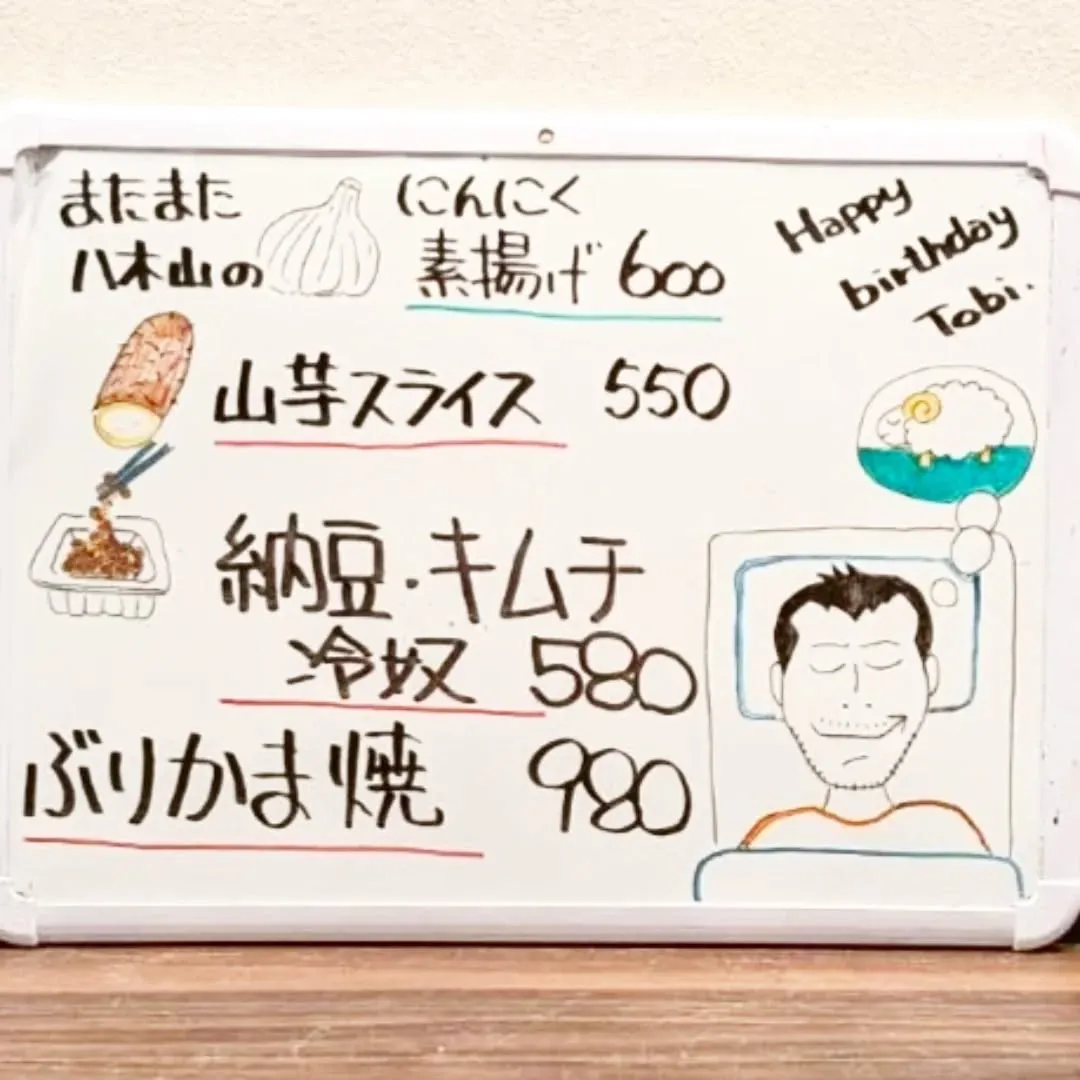 またまた
八木山の
にんにく
素揚げ 600
山芋スライス 550
納豆・キムチ
冷奴 580
ぶりかま焼 980
Happy
birthday
Tobi.